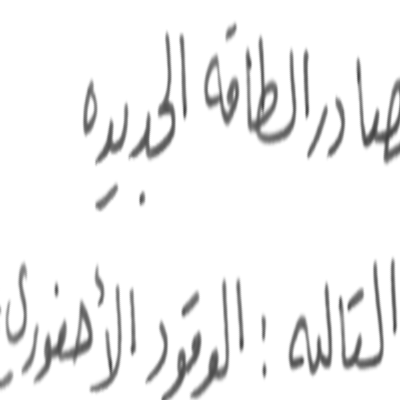 صادر الطاقه الجديده
التاليه : الوقود الأحفوري